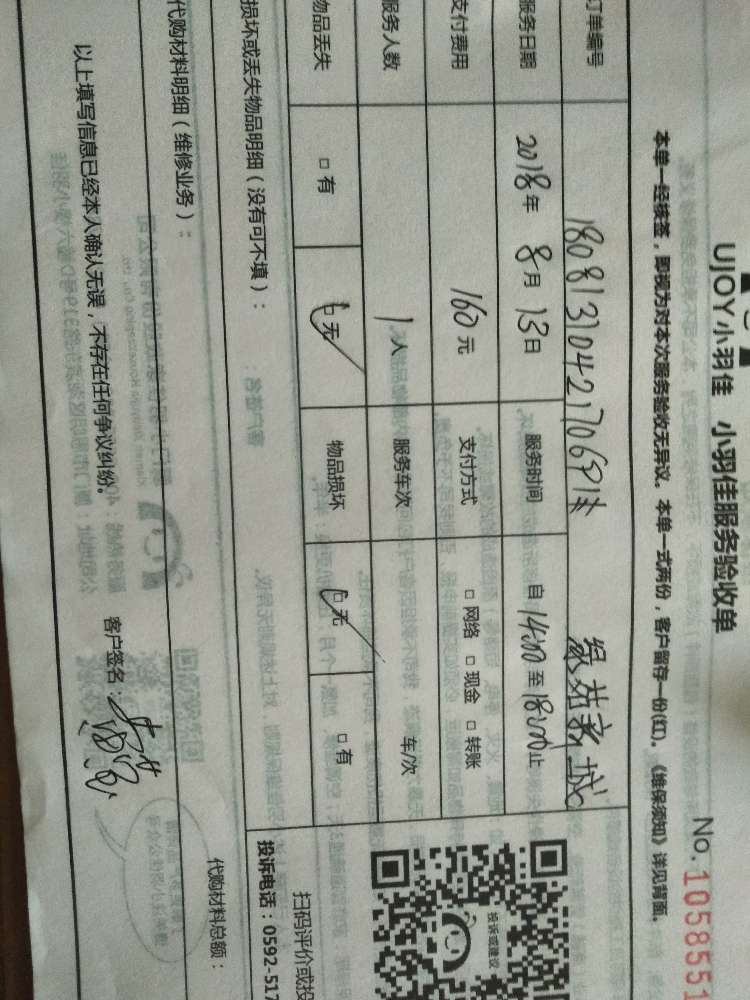 UJOY小羽佳 小羽佳服务验收单
No. 1058551
本单一经核签，即视为对本次服务验收无异议。本单一式两份，客户留存一份(红)。《维保须知》详见背面。
订单编号 18081310421706914
服务日期 2018年 8月 13日 服务时间 自14:00至18:00止
支付费用 160元 支付方式 □网络 □现金 □转账
服务人数 1人 服务车次 车/次
物品丢失 □有 □无 物品损坏 □无 □有
损坏或丢失物品明细（没有可不填）：
投诉或建议
扫码评价或投
投诉电话：0592-517
代购材料明细（维修业务）：
代购材料总额：
以上填写信息已经本人确认无误，不存在任何争议纠纷。 客户签名：